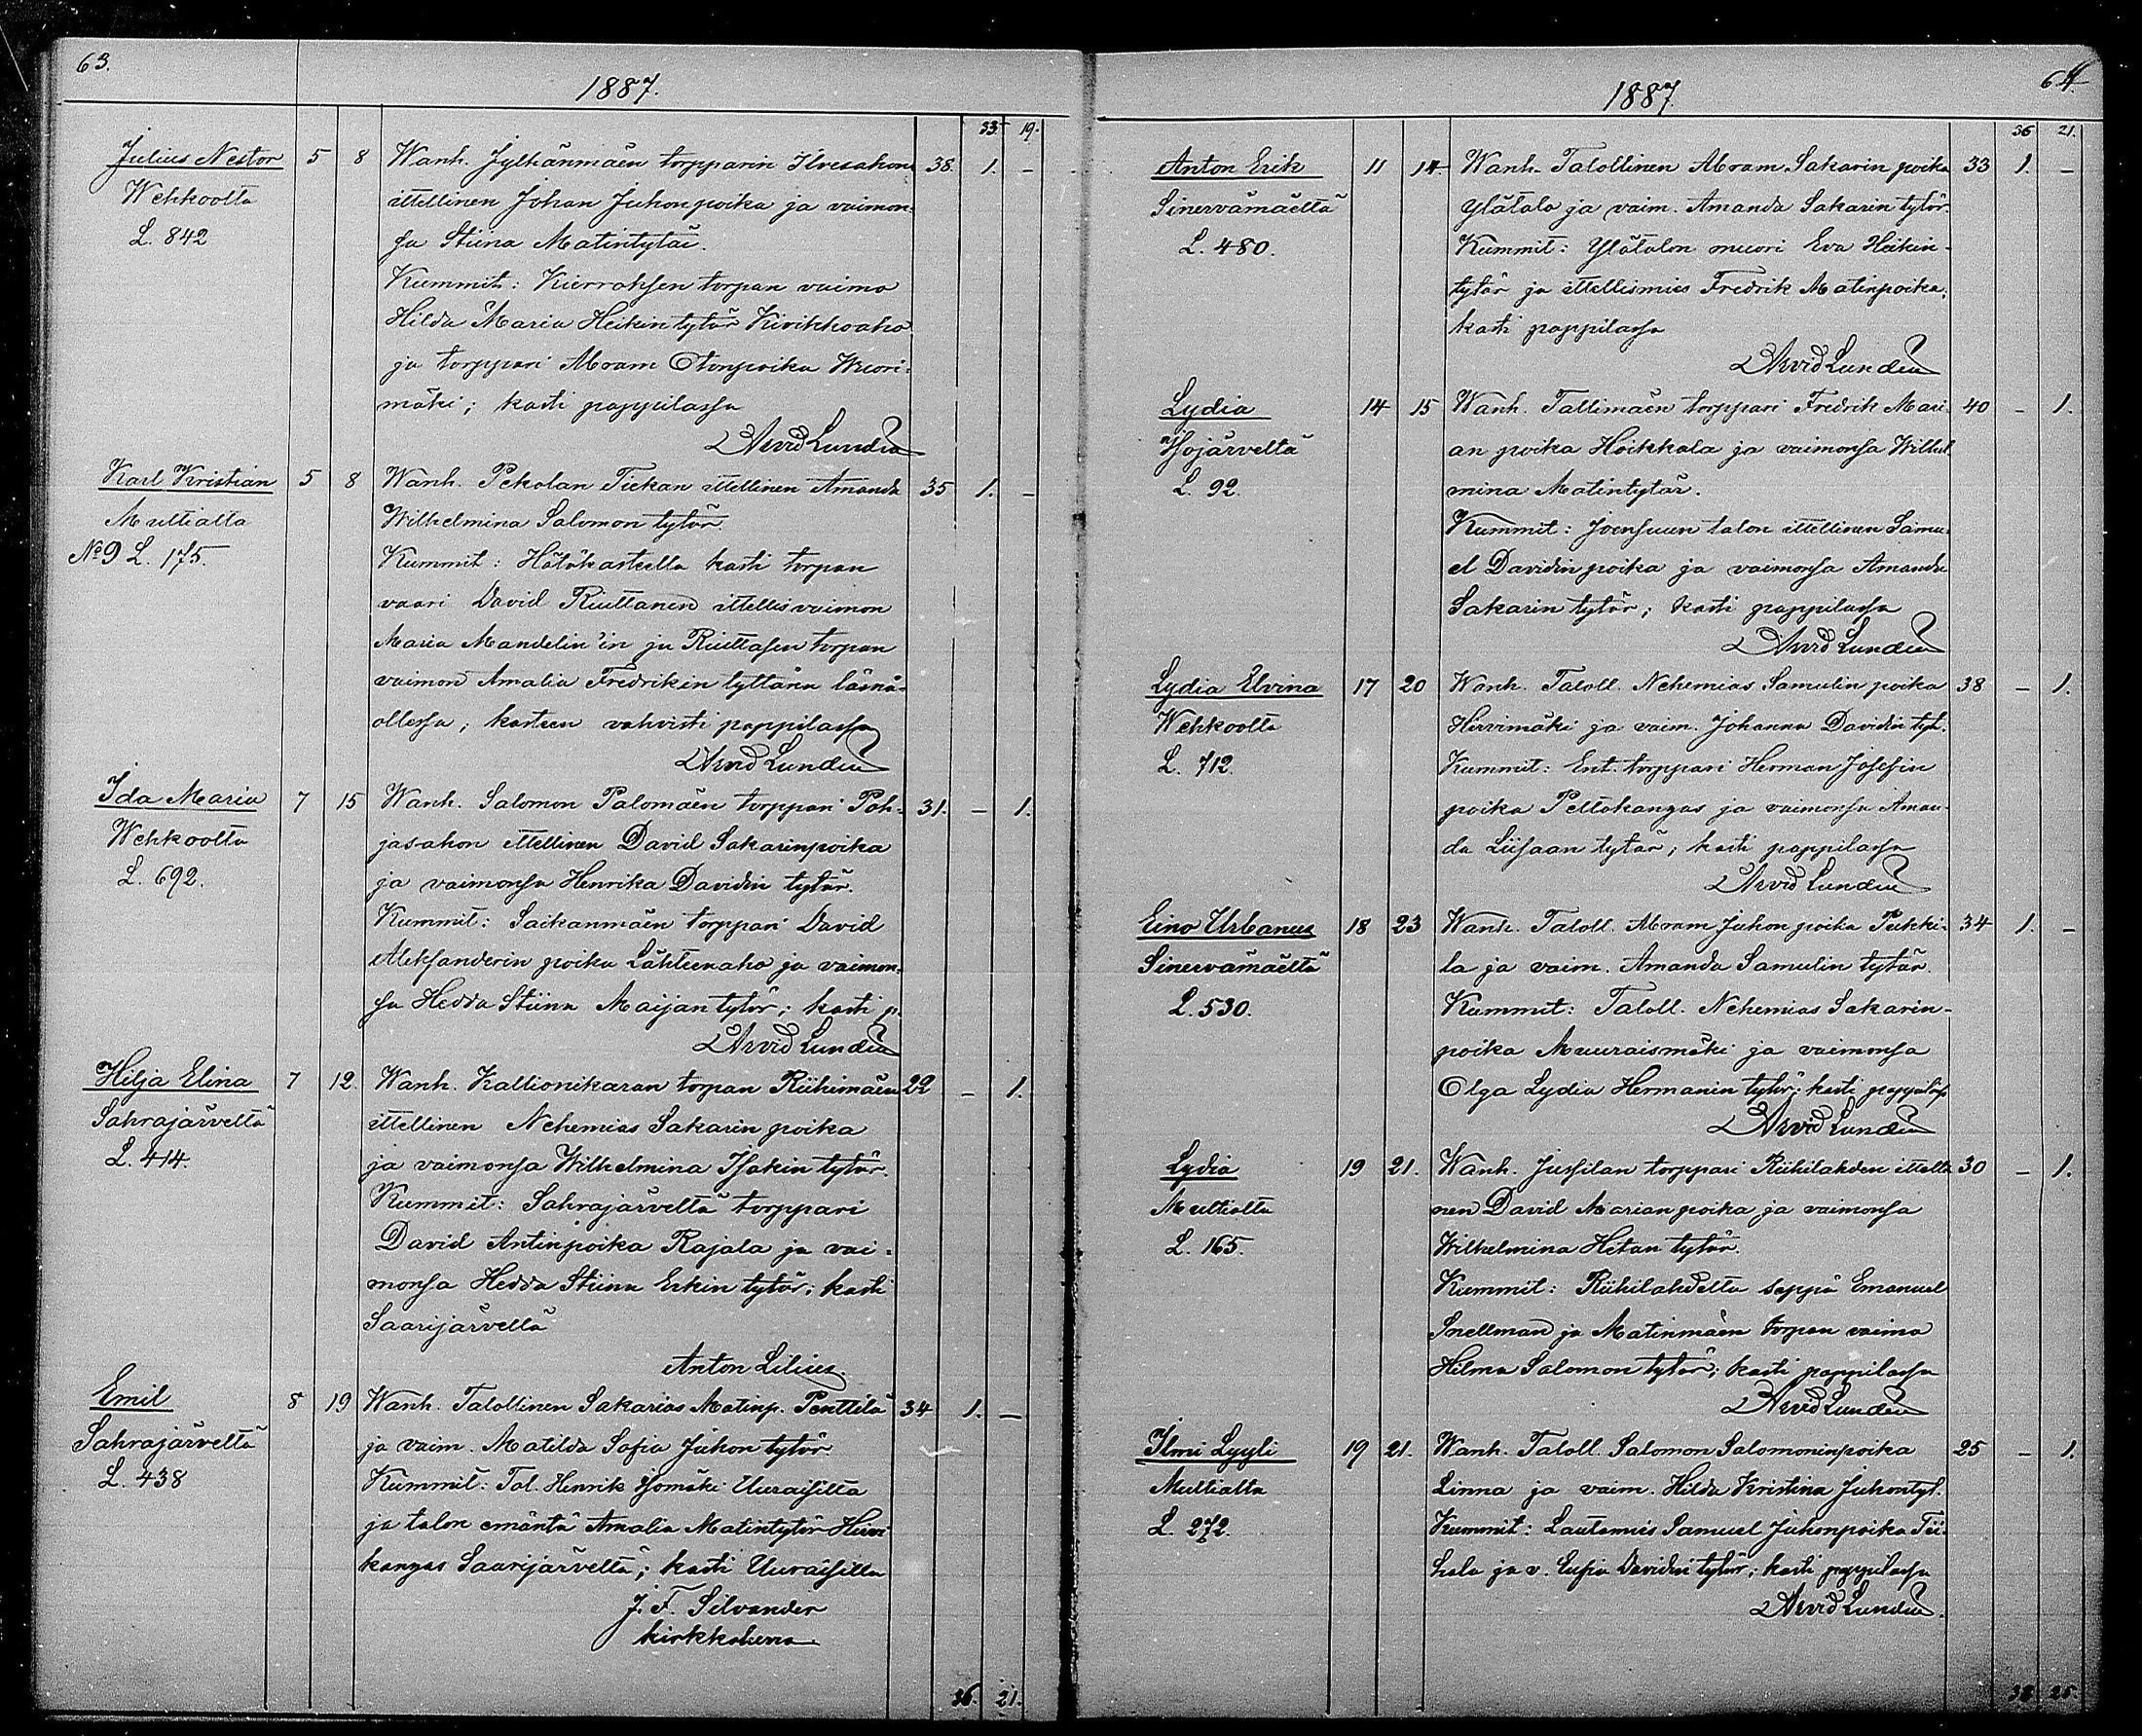 63.
1887.
33. 19.
Julius Nestor 5 8 Wanh. Jylhänmäen torpparin Ilvesahon 38. 1. -
Wehkoolta ittellinen Johan Juhonpoika ja vaimon-
L. 842 sa Stiina Matintytär.
Kummit: Kierroksen torpan vaimo
Hilda Maria Heikintytär Kivikkoaho
ja torppari Abram Otonpoika Wuori-
mäki; kasti pappilassa
Arvid Lundén
Karl Kristian 5 8 Wanh. Pekolan Tiekan ittellinen Amanda 35 1. -
Multialta Wilhelmina Salomon tytär.
No 9 L. 175. Kummit: Hätäkasteella kasti torpan
vaari David Riuttanen ittellisvaimon
Maria Mandelin'in ja Riuttasen torpan
vaimon Amalia Fredrikin tyttären läsnä-
ollessa; kasteen vahvisti pappilassa
Arvid Lundén
Ida Maria 7 15 Wanh. Salomon Palomäen torppari Poh- 31. - 1.
Wehkoolta jasahon ittellinen David Sakarinpoika
L. 692. ja vaimonsa Henrika Davidin tytär.
Kummit: Saikanmäen torppari David
Aleksanderin poika Lähteenaho ja vaimon-
sa Hedda Stiina Maijan tytär; kasti p.
Arvid Lundén
Hilja Elina 7 12. Wanh. Kallionikaran torpan Riihimäen 22 - 1.
Sahrajärveltä ittellinen Nehemias Sakarin poika
L. 414. ja vaimonsa Wilhelmina Isakin tytär.
Kummit: Sahrajärveltä torppari
David Antinpoika Rajala ja vai-
monsa Hedda Stiina Erkin tytär; kasti
Saarijärvellä
Anton Lilius.
Emil 8 19 Wanh. Talollinen Sakarias Matinp. Penttilä 34 1. -
Sahrajärveltä ja vaim. Matilda Sofia Juhon tytär
L. 438 Kummit: Tal. Henrik Isomäki Uuraisilta
ja talon emäntä Amalia Matintytär Hirvi-
kangas Saarijärveltä; kasti Uuraisilla
J. F. Silvander
kirkkoherra.
36. 21.
64.
1887
36 21.
Anton Erik 11 14 Wanh. Talollinen Abram Sakarin poika 33 1. -
Sinervämäeltä Ylätalo ja vaim. Amanda Sakarin tytär.
L. 480. Kummit: Ylätalon muori Eva Heikin-
tytär ja ittellismies Fredrik Matinpoika;
kasti pappilassa
Arvid Lundén
Lydia 14 15 Wanh. Tallimäen torppari Fredrik Mari- 40 - 1.
Isojärveltä an poika Hoikkala ja vaimonsa Wilhel-
L. 92. mina Matintytär.
Kummit: Joensuun talon ittellinen Samu-
el Davidin poika ja vaimonsa Amanda
Sakarin tytär; kasti pappilassa
Arvid Lundén
Lydia Elvina 17 20 Wanh. Taloll. Nehemias Samulin poika 38 - 1.
Wehkoolta Hirvimäki ja vaim. Johanna Davidin tyt.
L. 712. Kummit: Ent. torppari Herman Josefin
poika Peltokangas ja vaimonsa Aman-
da Liisaan tytär; kasti pappilassa
Arvid Lundén
Eino Urbanus 18 23 Wanh. Taloll. Abram Juhon poika Pukki- 34 1. -
Sinervämäeltä la ja vaim. Amanda Samulin tytär.
L. 530. Kummit: Taloll. Nehemias Sakarin-
poika Muuraismäki ja vaimonsa
Olga Lydia Hermanin tytär; kasti
Arvid Lundén
Lydia 19 21. Wanh. Jussilan torppari Riihilahden ittelli- 30 - 1.
Multialta nen David Marian poika ja vaimonsa
L. 165. Wilhelmina Hetan tytär.
Kummit: Riihilahdelta seppä Emanuel
Snellman ja Matinmäen torpan vaimo
Hilma Salomon tytär; kasti pappilassa
Arvid Lundén
Ilmi Lyyli 19 21. Wanh. Taloll. Salomon Salomoninpoika 25 - 1.
Multialta Linna ja vaim. Hilda Kristina Juhontyt.
L. 272. Kummit: Lautamies Samuel Juhonpoika Tii-
hala ja v. Eufia Davidin tytär; kasti pappilassa
Arvid Lundén.
38 25.